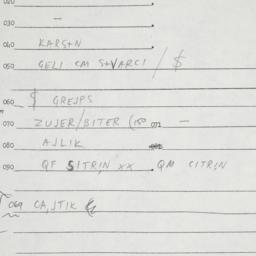 020
030 -
040 KARSTN
050 GELI CM S+VARCI / $
060 $ GREJPS
070 ZUJER/BITER (150 071 -
080 AJLIK
090 QF SITRIN XX QM CITRIN
069 CAJTIK